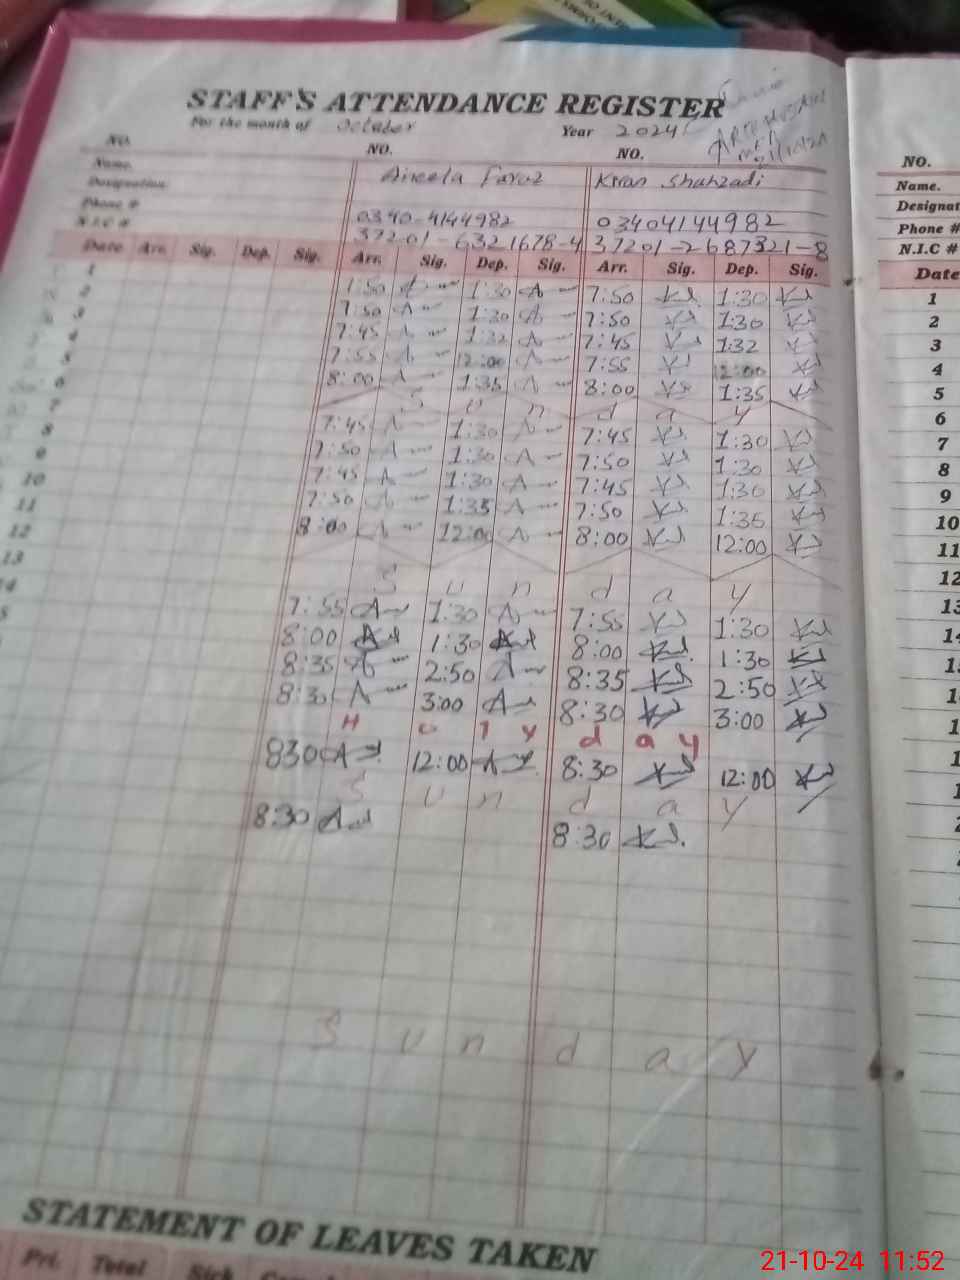 STAFF'S ATTENDANCE REGISTER
For the month of October Year 2024
NO. NO. NO.
Name. Aneela Faraz Kiran Shahzadi
Designation
Phone # 0340-4144982 03404144982
N.I.C # 37201-6321678-4 37201-2687321-8
Date Arr. Sig. Dep. Sig. Arr. Sig. Dep. Sig. Arr. Sig. Dep. Sig.
1 7:50 1:30 7:50 1:30
2 7:50 1:30 7:50 1:30
3 7:45 1:32 7:45 1:32
4 7:55 12:00 7:55 12:00
5 8:00 1:35 8:00 1:35
6 S u n d a y
7 7:45 1:30 7:45 1:30
8 7:50 1:30 7:50 1:30
9 7:45 1:30 7:45 1:30
10 7:50 1:35 7:50 1:35
11 8:00 12:00 8:00 12:00
12
13 S u n d a y
7:55 1:30 7:55 1:30
8:00 1:30 8:00 1:30
8:35 2:50 8:35 2:50
8:30 3:00 8:30 3:00
H o l y d a y
830 12:00 8:30 12:00
S u n d a y
8:30 8:30
S u n d a y
STATEMENT OF LEAVES TAKEN
Pri. Total Sick
NO.
Name.
Designat
Phone #
N.I.C #
Date
1
2
3
4
5
6
7
8
9
10
11
12
13
21-10-24 11:52